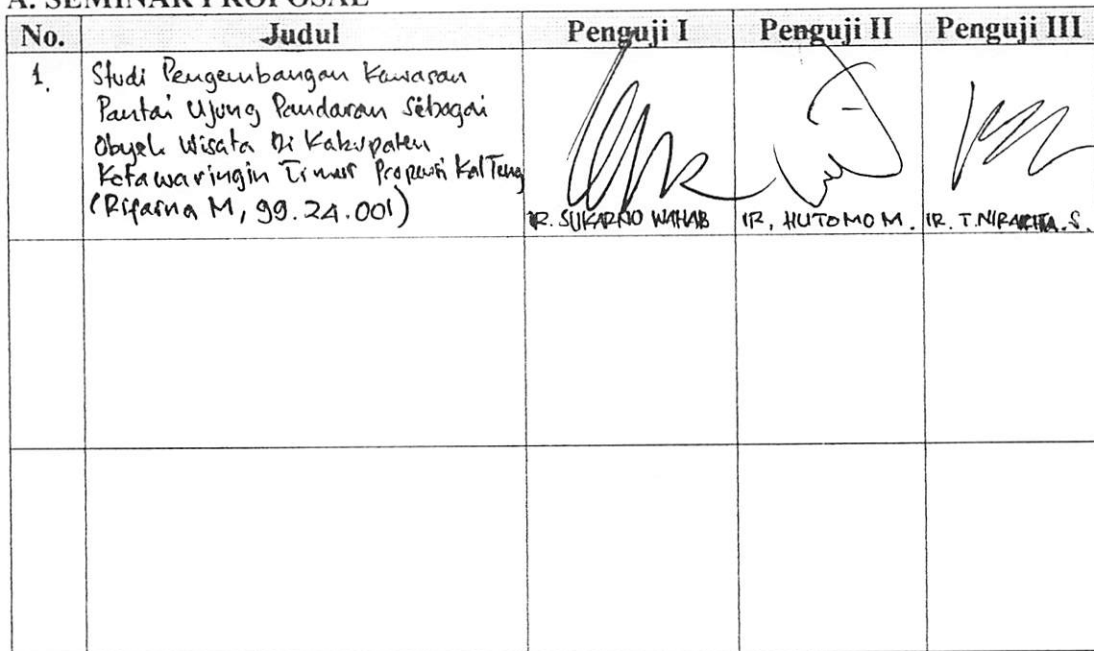 A. SEMINAR PROPOSAL
No. Judul Penguji I Penguji II Penguji III
1. Studi Pengembangan Kawasan
Pantai Ujung Pandaran Sebagai
Obyek Wisata Di Kabupaten
Kotawaringin Timur Propinsi KalTeng
(Rifaina M, 99.24.001)
IR. SUKARNO WAHAB IR. HUTOMO M. IR. T. NIRARTHA. S.